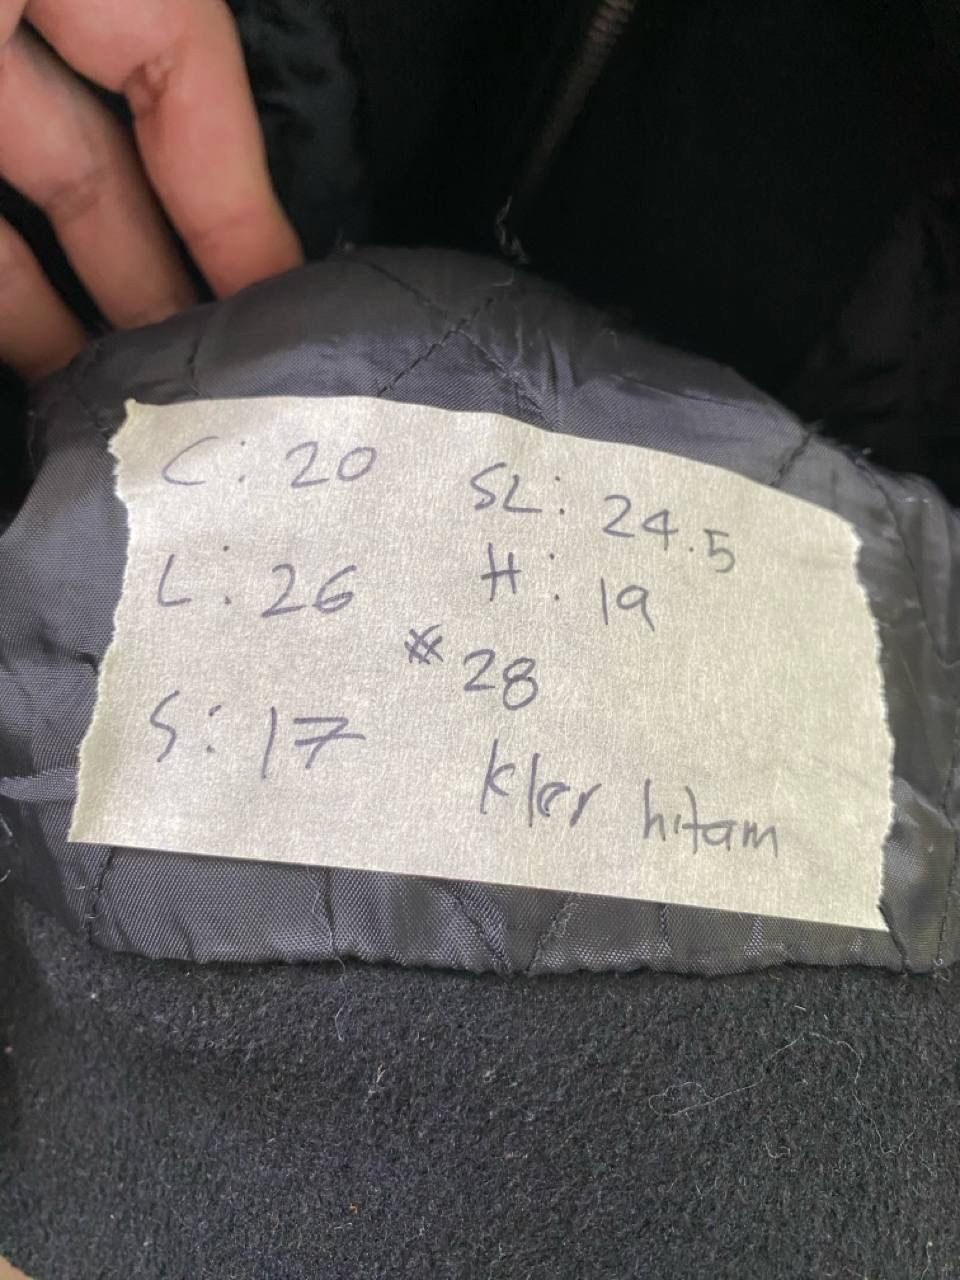 C: 20 SL: 24.5
L: 26 H: 19
# 28
S: 17
kler hitam